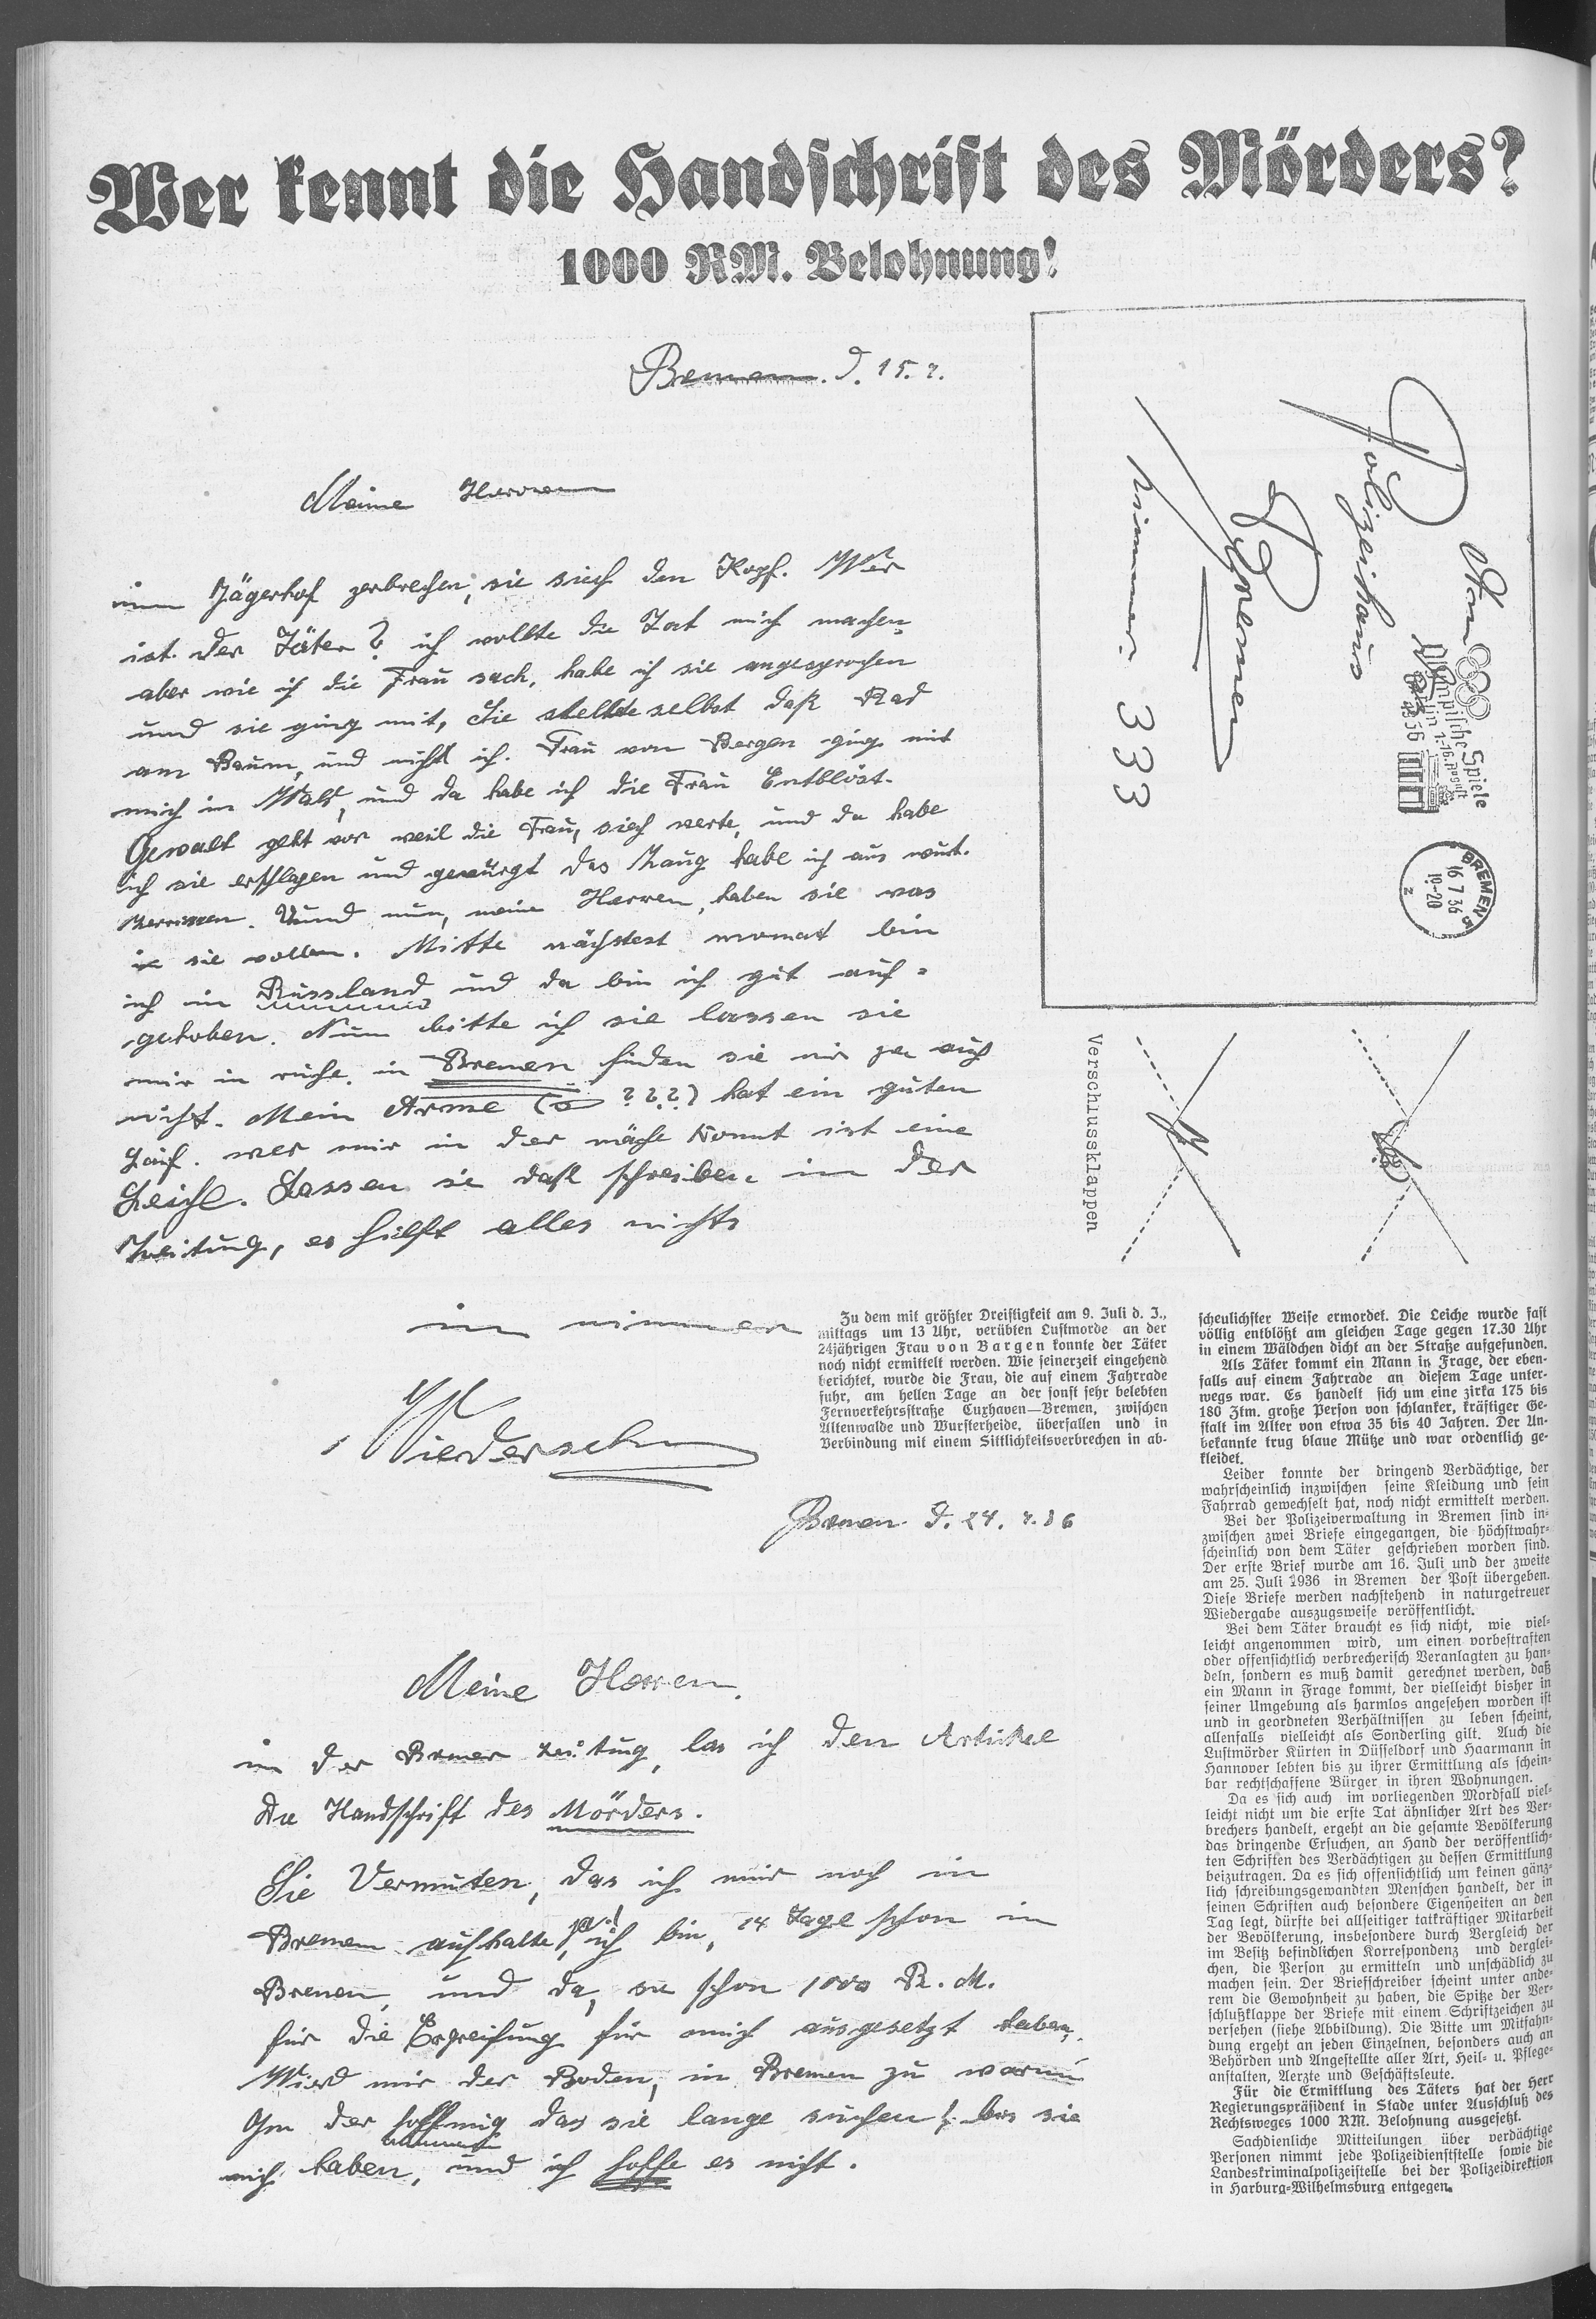 Wer kennt die Handschrift des Mörders?
1000 RM. Belohnung!
Bremen. d. 15. 7.
Meine Herren
im Jägerhof zerbrechen, sie sich den Kopf. Wer
ist der Täter? ich wollte die Tat nich machen,
aber wie ich die Frau sach, habe ich sie angesprochen
und sie ging mit, Sie stellte selbst daß Rad
am Baum, und nicht ich. Frau von Bergen ging mit
mich in Wald, und da habe ich die Frau Entblöst.
Gewalt geht vor weil die Frau, sich werte, und da habe
ich sie erschlagen und gewürgt das Zeug habe ich aus wut.
Zerrissen. Uund nun, meine Herren, haben sie was
sie wollen. Mitte nächstest monat bin
ich in Russland und da bin ich gut auf-
gehoben. Nun bitte ich sie lassen sie
mir in ruhe. in Bremen finden sie mir ja auch
nicht. Mein Arme ( ???) hat ein guten
Lauf. wer mir in der nähe kommt ist eine
Leiche. Lassen sie daß schreiben in der
Zeitung, es hielft alles nichts
in nimmer
Wiedersehn
Am
Polizeihaus
Bremen
Zimmer. 333
Olympische Spiele
Berlin 1.-16. August
1936
BREMEN 5
16 7 36
19-20
z
Verschlussklappen
Zu dem mit größter Dreistigkeit am 9. Juli d. J.,
mittags um 13 Uhr, verübten Lustmorde an der
24jährigen Frau von Bargen konnte der Täter
noch nicht ermittelt werden. Wie seinerzeit eingehend
berichtet, wurde die Frau, die auf einem Fahrrade
fuhr, am hellen Tage an der sonst sehr belebten
Fernverkehrsstraße Cuxhaven—Bremen, zwischen
Altenwalde und Wursterheide, überfallen und in
Verbindung mit einem Sittlichkeitsverbrechen in ab-
scheulichster Weise ermordet. Die Leiche wurde fast
völlig entblößt am gleichen Tage gegen 17.30 Uhr
in einem Wäldchen dicht an der Straße aufgefunden.
Als Täter kommt ein Mann in Frage, der eben-
falls auf einem Fahrrade an diesem Tage unter-
wegs war. Es handelt sich um eine zirka 175 bis
180 Ztm. große Person von schlanker, kräftiger Ge-
stalt im Alter von etwa 35 bis 40 Jahren. Der Un-
bekannte trug blaue Mütze und war ordentlich ge-
kleidet.
Leider konnte der dringend Verdächtige, der
wahrscheinlich inzwischen seine Kleidung und sein
Fahrrad gewechselt hat, noch nicht ermittelt werden.
Bei der Polizeiverwaltung in Bremen sind in-
zwischen zwei Briefe eingegangen, die höchstwahr-
scheinlich von dem Täter geschrieben worden sind.
Der erste Brief wurde am 16. Juli und der zweite
am 25. Juli 1936 in Bremen der Post übergeben.
Diese Briefe werden nachstehend in naturgetreuer
Wiedergabe auszugsweise veröffentlicht.
Bei dem Täter braucht es sich nicht, wie viel-
leicht angenommen wird, um einen vorbestraften
oder offensichtlich verbrecherisch Veranlagten zu han-
deln, sondern es muß damit gerechnet werden, daß
ein Mann in Frage kommt, der vielleicht bisher in
seiner Umgebung als harmlos angesehen worden ist
und in geordneten Verhältnissen zu leben scheint,
allenfalls vielleicht als Sonderling gilt. Auch die
Lustmörder Kürten in Düsseldorf und Haarmann in
Hannover lebten bis zu ihrer Ermittlung als schein-
bar rechtschaffene Bürger in ihren Wohnungen.
Da es sich auch im vorliegenden Mordfall viel-
leicht nicht um die erste Tat ähnlicher Art des Ver-
brechers handelt, ergeht an die gesamte Bevölkerung
das dringende Ersuchen, an Hand der veröffentlich-
ten Schriften des Verdächtigen zu dessen Ermittlung
beizutragen. Da es sich offensichtlich um keinen gänz-
lich schreibungsgewandten Menschen handelt, der in
seinen Schriften auch besondere Eigenheiten an den
Tag legt, dürfte bei allseitiger tatkräftiger Mitarbeit
der Bevölkerung, insbesondere durch Vergleich der
im Besitz befindlichen Korrespondenz und derglei-
chen, die Person zu ermitteln und unschädlich zu
machen sein. Der Briefschreiber scheint unter ande-
rem die Gewohnheit zu haben, die Spitze der Ver-
schlußklappe der Briefe mit einem Schriftzeichen zu
versehen (siehe Abbildung). Die Bitte um Mitfahn-
dung ergeht an jeden Einzelnen, besonders auch an
Behörden und Angestellte aller Art, Heil- u. Pflege-
anstalten, Aerzte und Geschäftsleute.
Für die Ermittlung des Täters hat der Herr
Regierungspräsident in Stade unter Ausschluß des
Rechtsweges 1000 RM. Belohnung ausgesetzt.
Sachdienliche Mitteilungen über verdächtige
Personen nimmt jede Polizeidienststelle sowie die
Landeskriminalpolizeistelle bei der Polizeidirektion
in Harburg-Wilhelmsburg entgegen.
Bremen d. 24. 7. 36
Meine Herren.
in der Bremer zeitung, las ich den Artickel
Die Handschrift des Mörders.
Sie Vermuten, das ich mir noch in
Bremen aufhalte, ja! ich bin, 14 Tage schon in
Bremen, und da, sie schon 1000 R. M.
für die Ergreifung für mich ausgesetzt haben,
Wird mir der Boden, in Bremen zu warm
In der hoffnung das sie lange suchen! bis sie
mich haben, und ich hoffe es nicht.